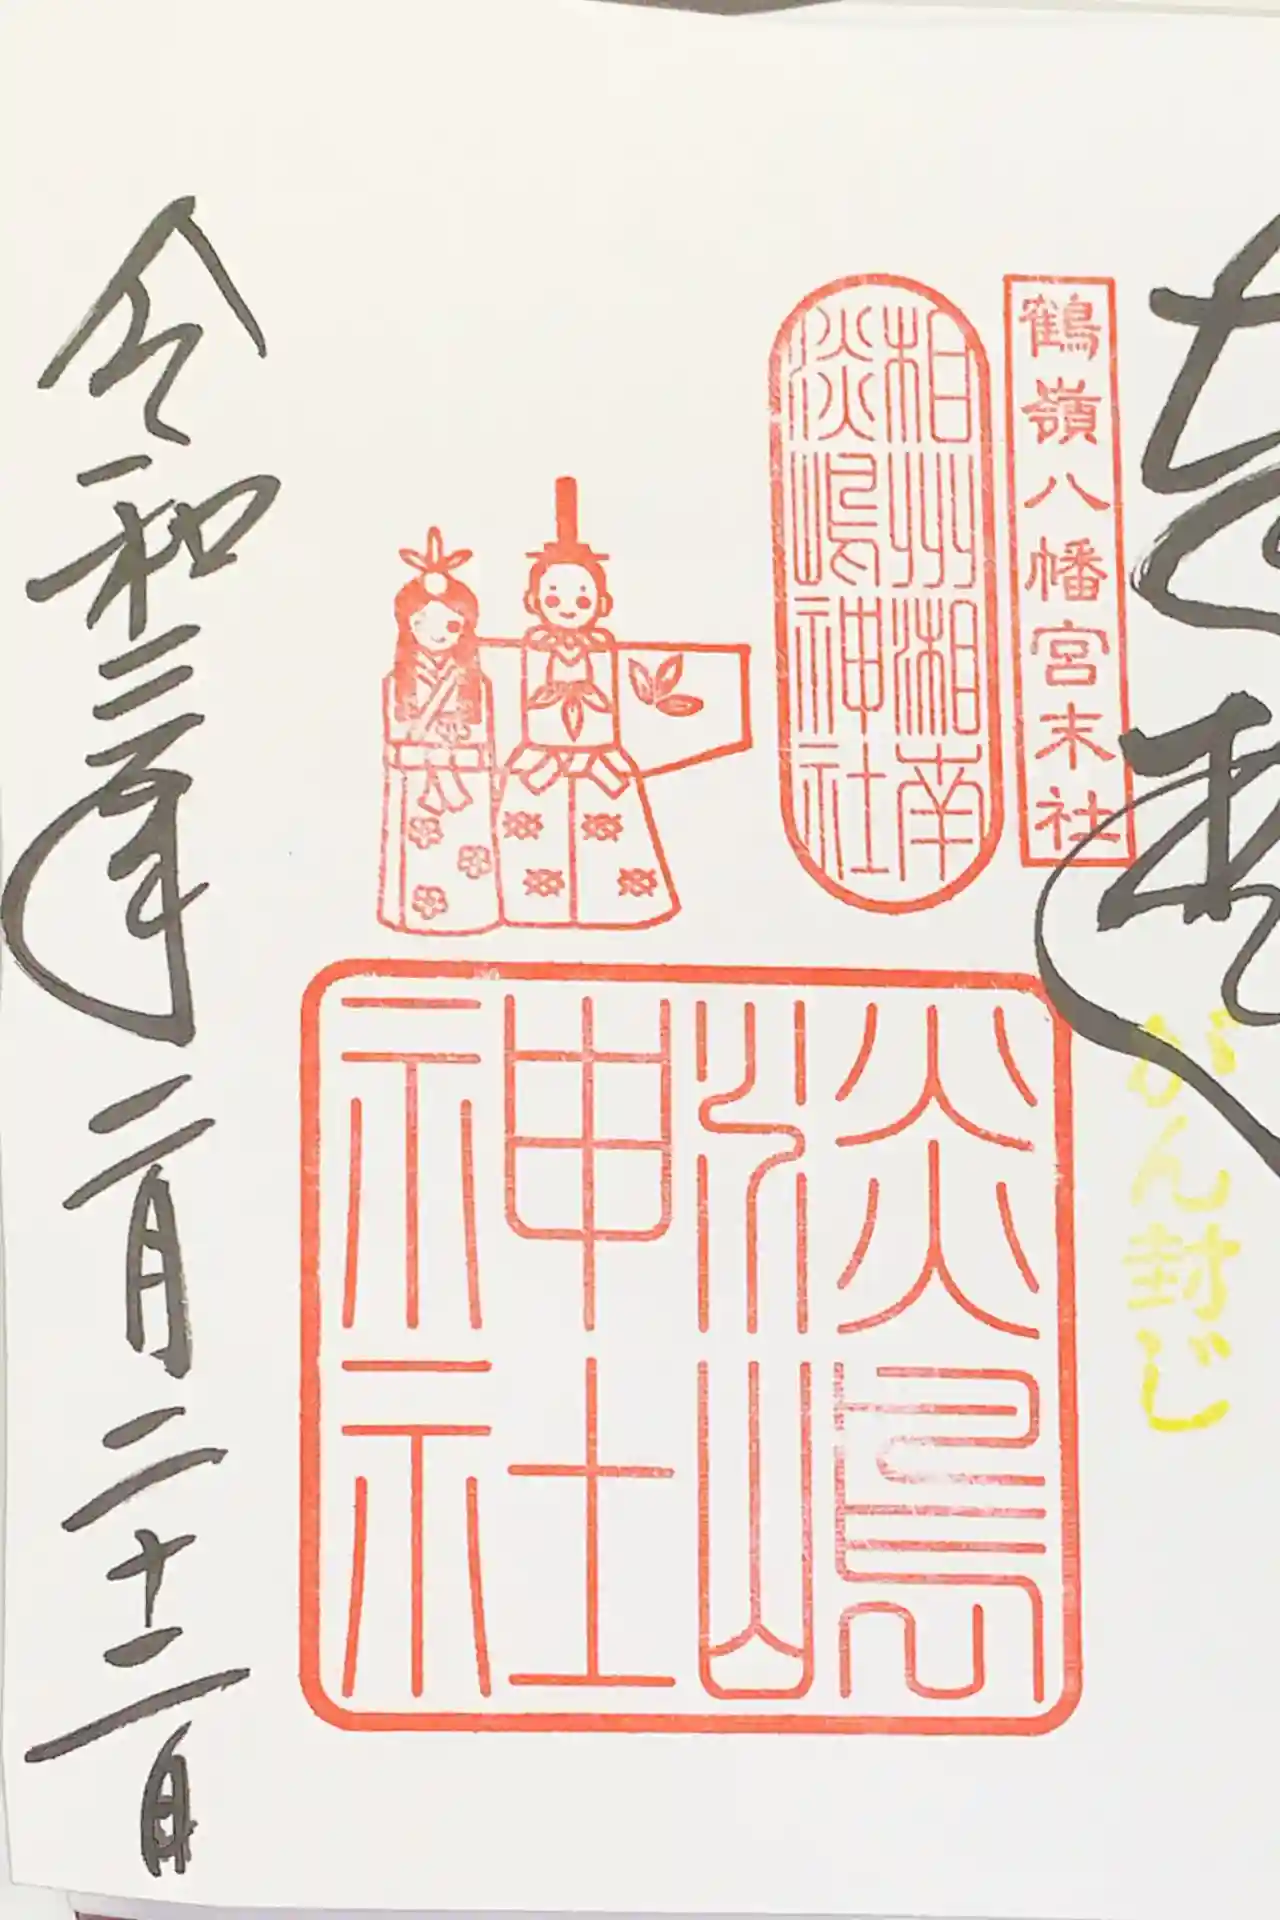 がん封じ
鶴嶺八幡宮末社
相州湘南
淡嶋神社
淡嶋
神社
令和三年二月二十二日